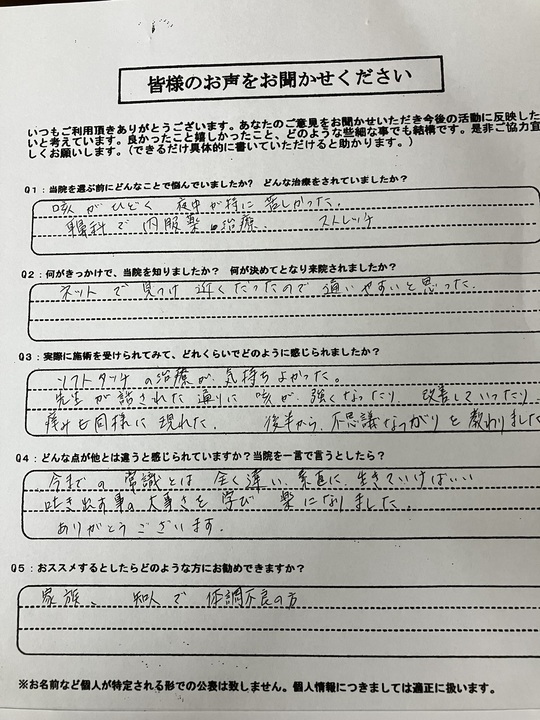 皆様のお声をお聞かせください
いつもご利用頂きありがとうございます。あなたのご意見をお聞かせいただき今後の活動に反映した
いと考えています。良かったこと嬉しかったこと、どのような些細な事でも結構です。是非ご協力宜
しくお願いします。(できるだけ具体的に書いていただけると助かります。)
Q1：当院を選ぶ前にどんなことで悩んでいましたか? どんな治療をされていましたか?
咳がひどく 夜中が特に苦しかった。
耳鼻科で内服薬の治療、 ストレッチ
Q2：何がきっかけで、当院を知りましたか? 何が決めてとなり来院されましたか?
ネットで見つけ 近くだったので 通いやすいと思った。
Q3：実際に施術を受けられてみて、どれくらいでどのように感じられましたか?
ソフトタッチの治療が、気持ちよかった。
先生が話された通りに 咳が、強くなったり 改善していったり
痛みも同様に現れた。 後半から、不思議なつがりを教わりました
Q4：どんな点が他とは違うと感じられていますか?当院を一言で言うとしたら?
今までの常識とは 全く違い、素直に、生きていけばいい
吐き出す事の大事さを学び 楽になりました。
ありがとうございます。
Q5：おススメするとしたらどのような方にお勧めできますか?
家族、 知人で 体調不良の方
※お名前など個人が特定される形での公表は致しません。個人情報につきましては適正に扱います。